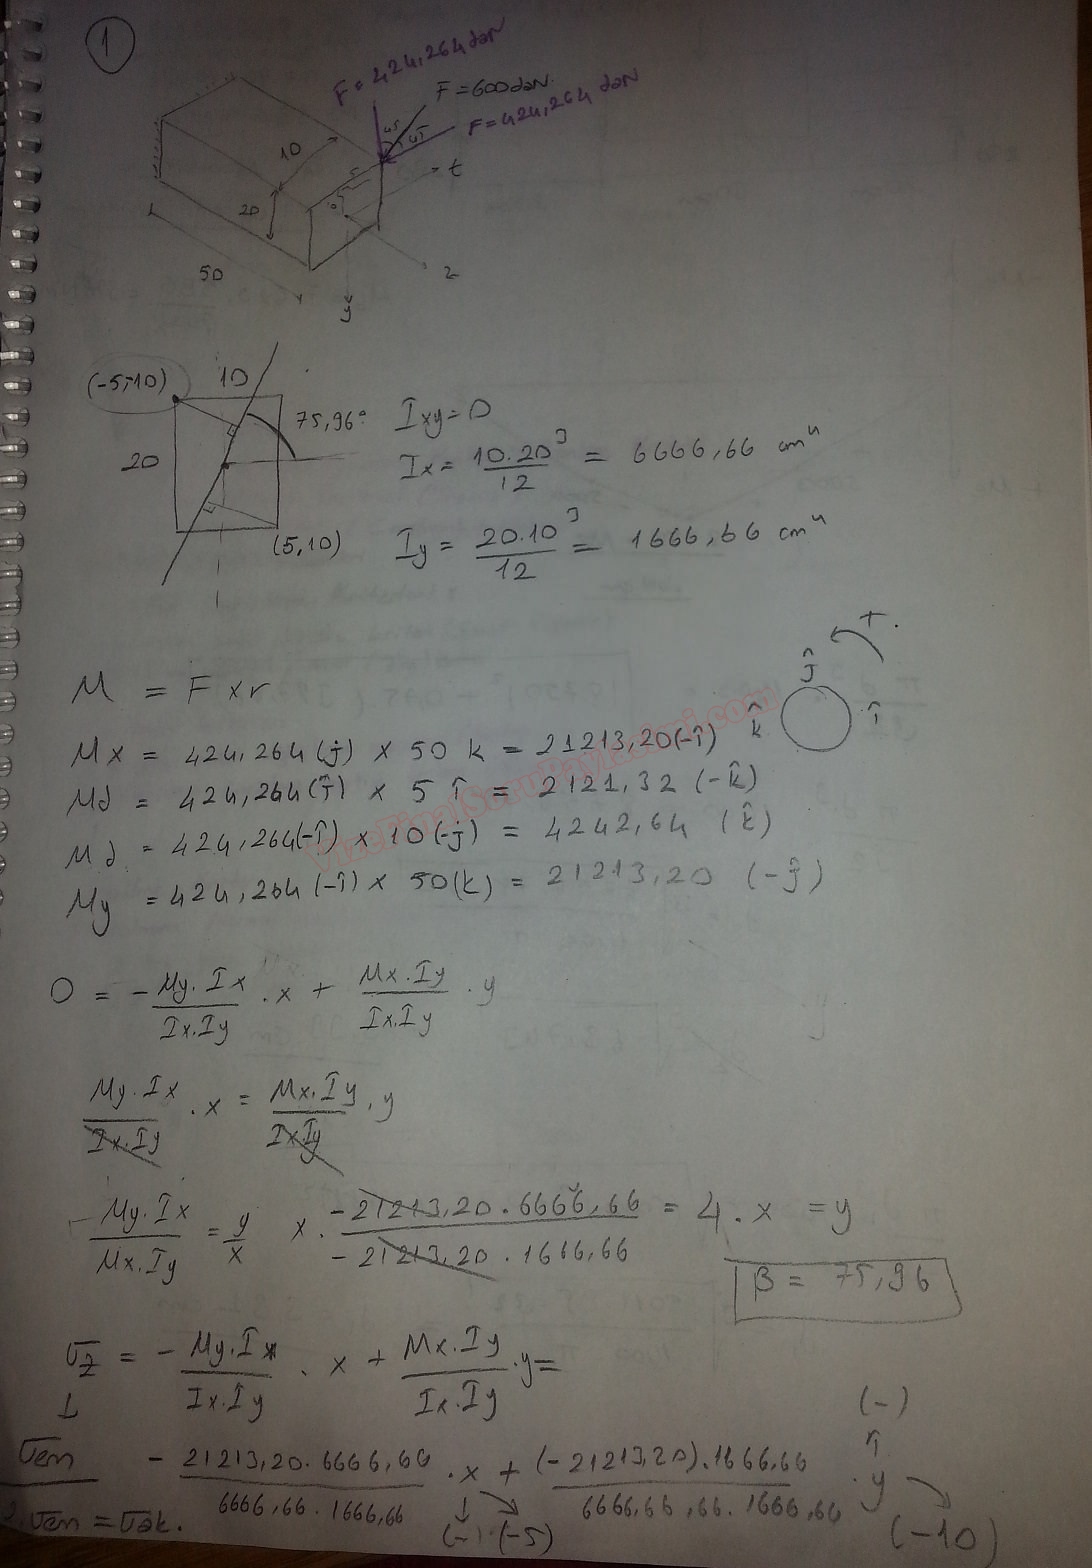 1
F=424,264 daN
F=600daN
F=424,264 daN
45
45
10
5
t
20
50
z
y
(-5,-10)
10
75,96°
20
(5,10)
Ixy=0
Ix= 10.20³/12 = 6666,66 cm⁴
Iy = 20.10³/12 = 1666,66 cm⁴
+
ĵ
k̂
î
M = F x r
Mx = 424,264(j) x 50 k = 21213,20(-î)
= 424,264(î) x 5 î = 2121,32 (-k̂)
= 424,264(-î) x 10(-j) = 4242,64 (k̂)
My = 424,264 (-î) x 50(k) = 21213,20 (-ĵ)
0 = - My.Ix/Ix.Iy . x + Mx.Iy/Ix.Iy . y
My.Ix/Ix.Iy . x = Mx.Iy/Ix.Iy . y
- My.Ix/Mx.Iy = y/x x. -21213,20.6666,66/-21213,20.1666,66 = 4.x = y
β = 75,96
σz = - My.Ix/Ix.Iy . x + Mx.Iy/Ix.Iy . y=
(-)
σem - 21213,20.6666,66/6666,66.1666,66 . x + (-21213,20).1666,66/6666,66,66.1666,66 . y
σem = σak.
(-) (-5)
(-10)